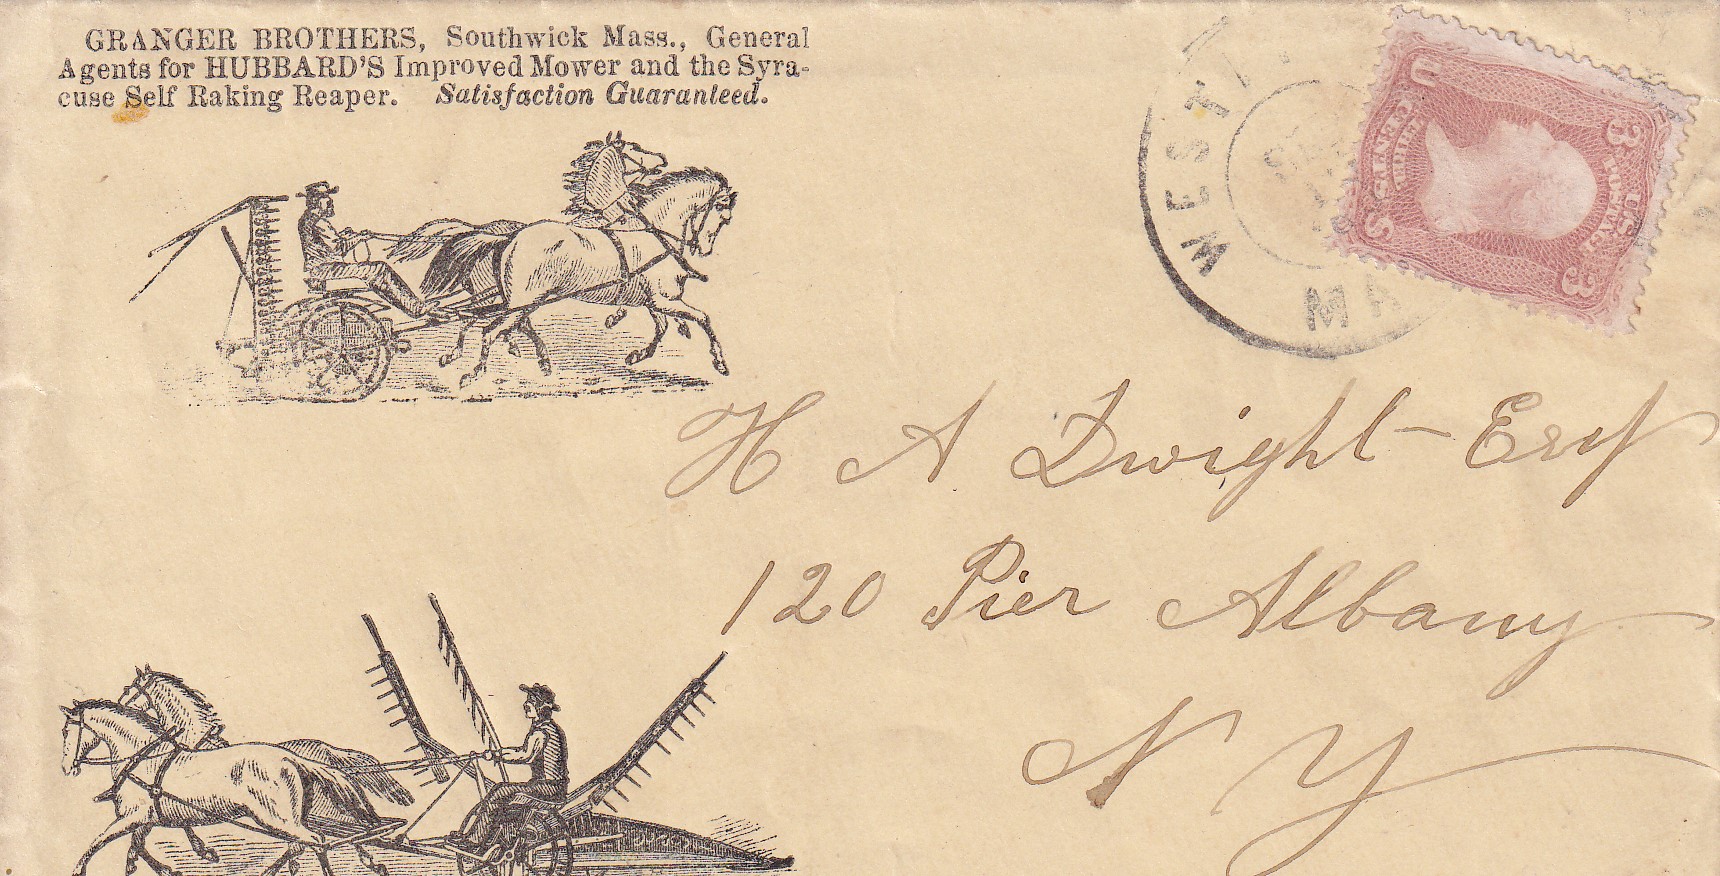 GRANGER BROTHERS, Southwick Mass., General
Agents for HUBBARD'S Improved Mower and the Syra-
cuse Self Raking Reaper. Satisfaction Guaranteed.
WESTF
MA
U S
3 3
THREE CENTS
U.S. POSTAGE
H A Dwight - Esq
120 Pier Albany
N Y